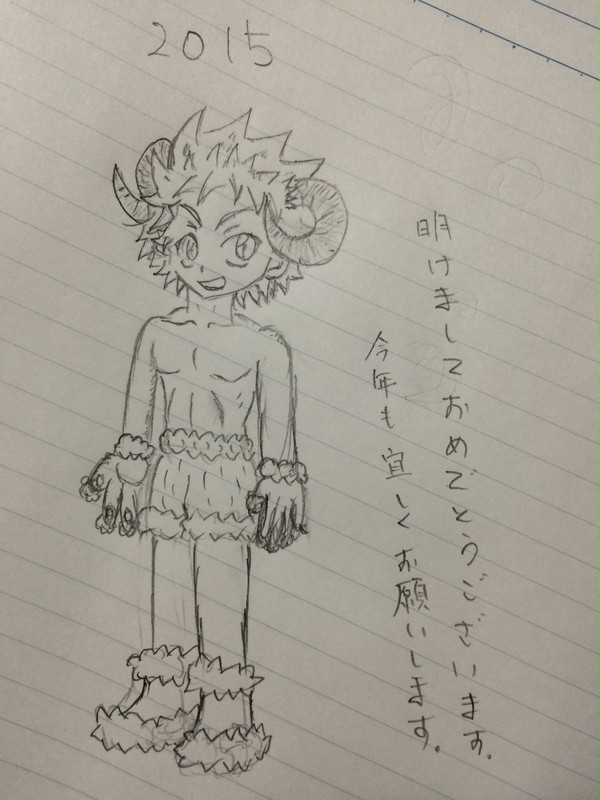 2015
明けましておめでとうございます。
今年も宜しくお願いします。